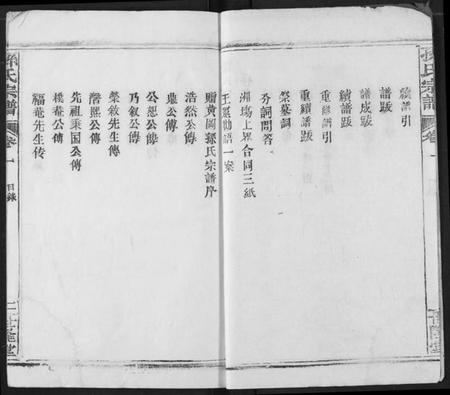 孫氏宗譜
卷一
續譜引
譜跋
譜成跋
續譜跋
重續譜引
重續譜跋
祭墓詞
芬詞問答
洲場上界合同三紙
王墨勸語一案
贈黃岡孫氏宗譜序
浩然公傳
公傳
公恕公傳
乃叙公傳
榮敘先生傳
階熙公傳
先祖秉国公傳
樸菴公傳
福菴先生传
孫氏宗譜
卷一
目錄
二